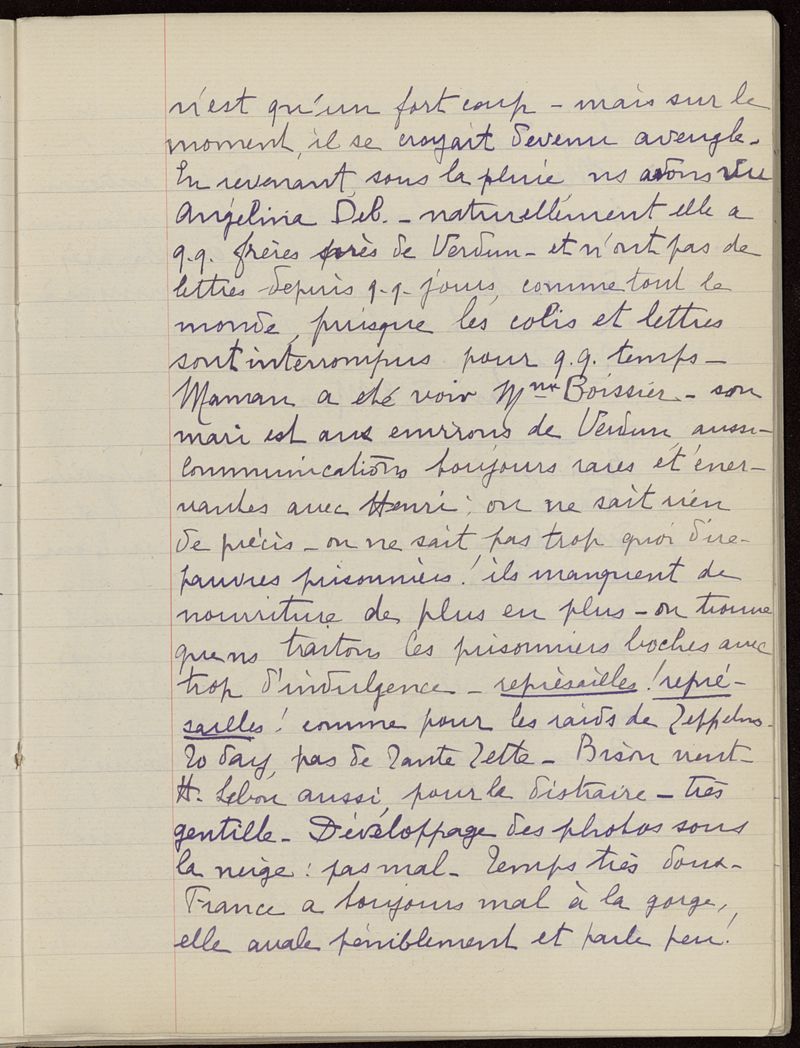 n'est qu'un fort coup - mais sur le
moment, il se croyait devenu aveugle.
En revenant, sous la pluie ns avons vu
Angélina Deb. - naturellement elle a
q.q. frères près de Verdun - et n'ont pas de
lettres depuis q.q. jours, comme tout le
monde, puisque les colis et lettres
sont interrompus pour q.q. temps -
Maman a été voir Mme Boissier - son
mari est aux environs de Verdun aussi -
Communications toujours rares et éner-
vantes avec Henri : on ne sait rien
de précis - on ne sait pas trop quoi dire -
pauvres prisonniers ! ils manquent de
nourriture de plus en plus - on trouve
que ns traitons les prisonniers boches avec
trop d'indulgence - représailles ! repré-
sailles ! comme pour les raids de Zeppelins.
To day, pas de Tante Zette - Bison vient -
H. Lebon aussi, pour le distraire - très
gentille - Développage des photos sous
la neige : pas mal - Temps très doux -
France a toujours mal à la gorge,
elle avale péniblement et parle peu !